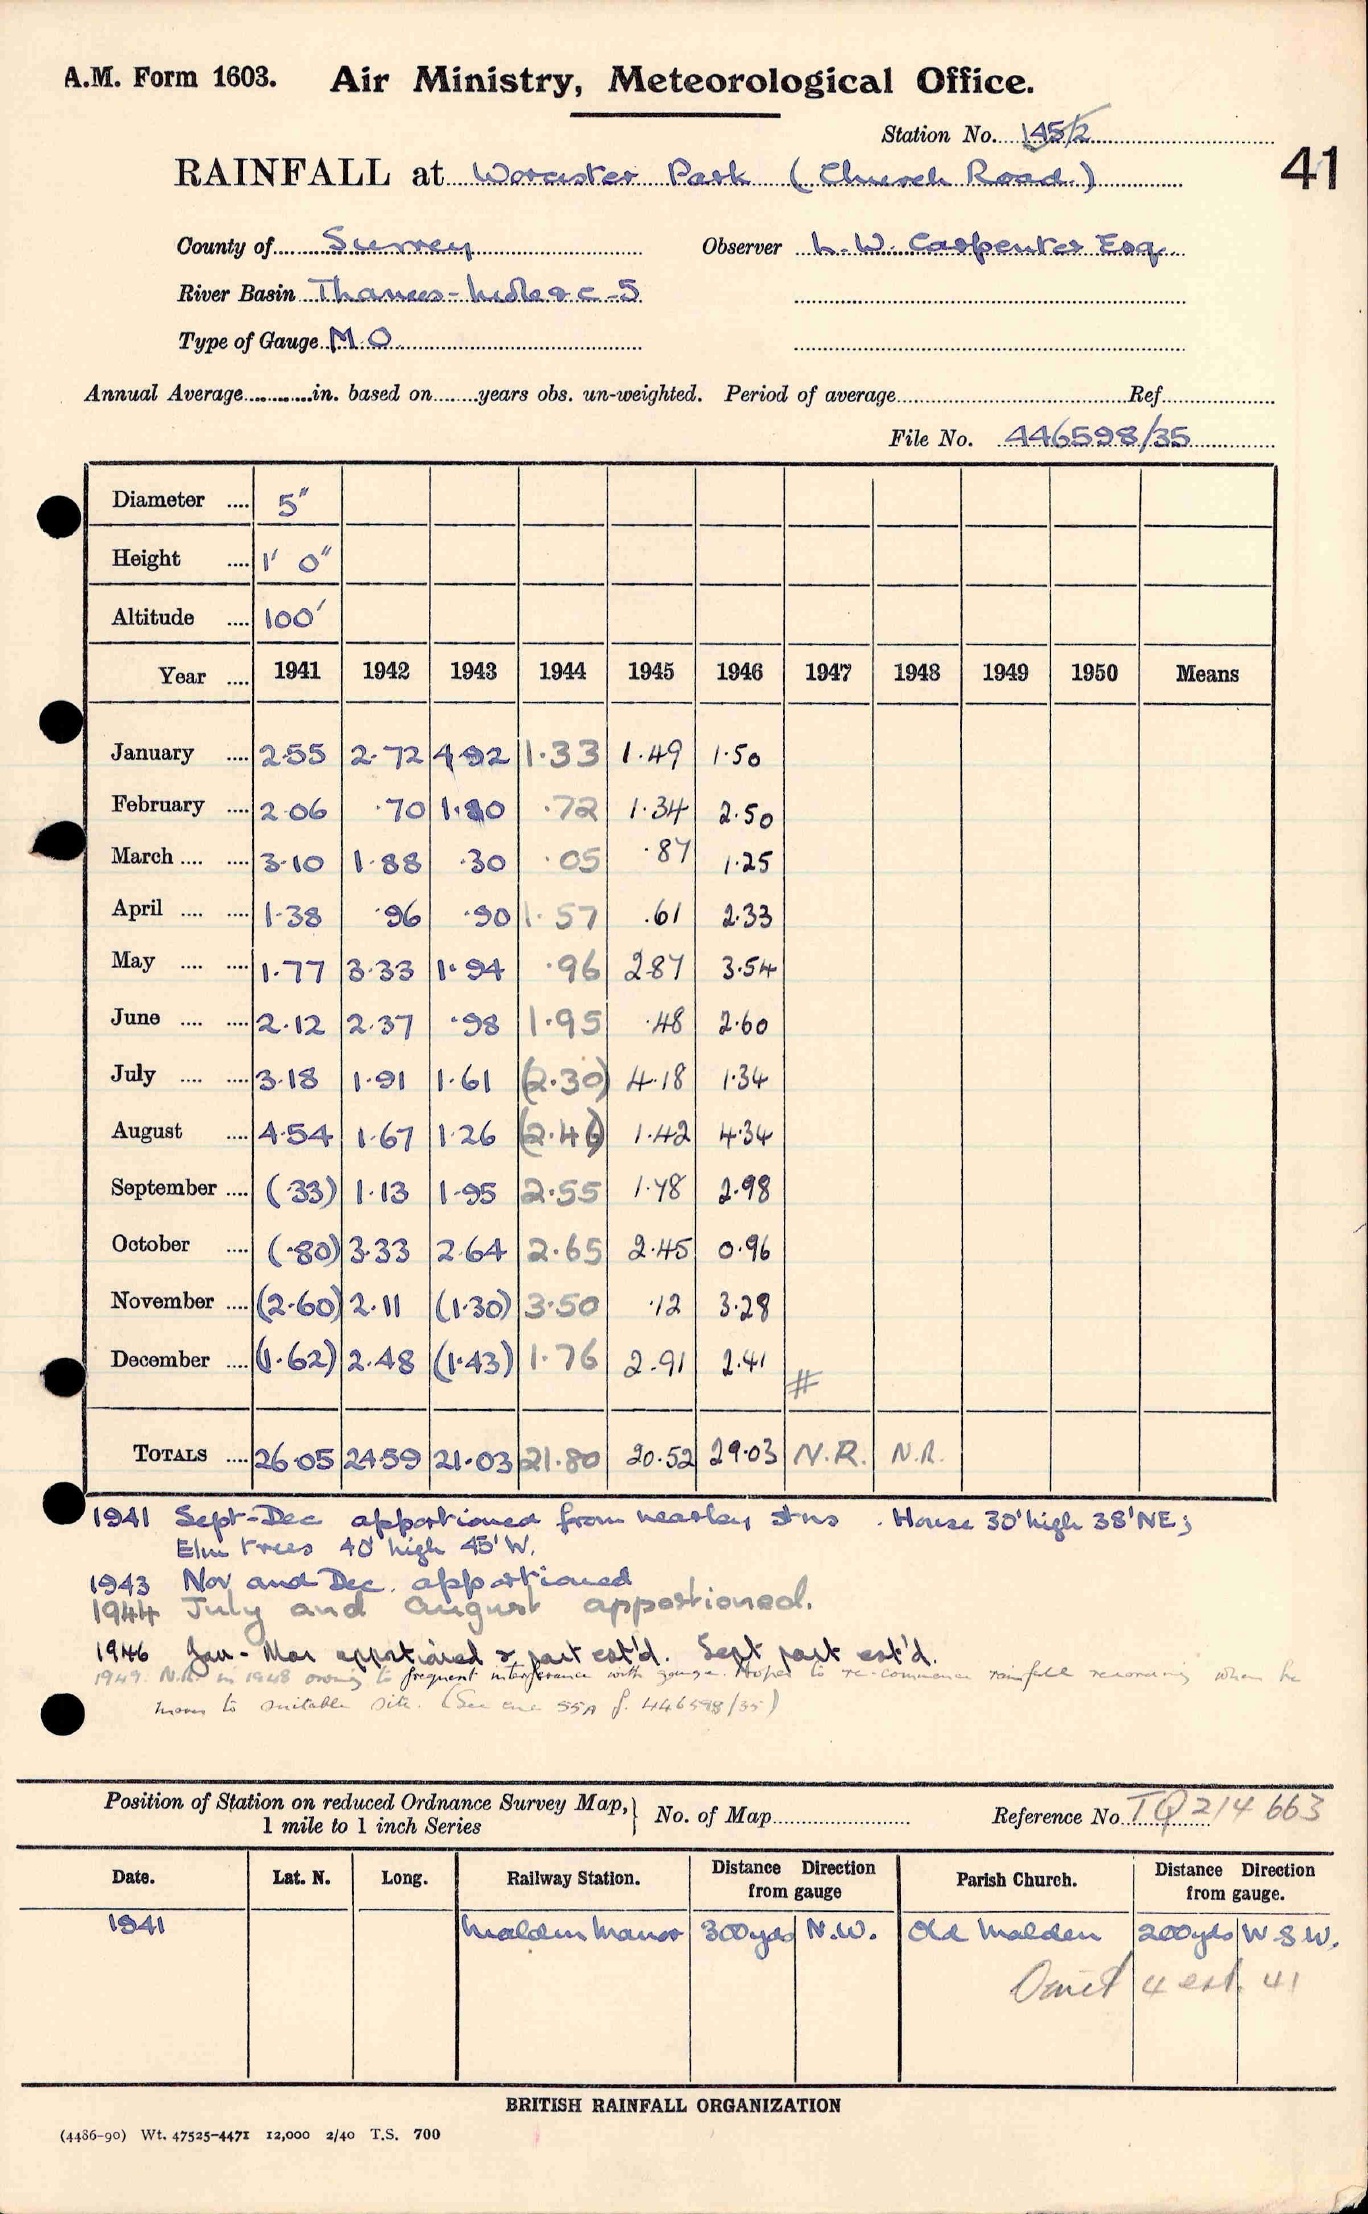 A.M. Form 1603. Air Ministry, Meteorological Office.
Station No. 145/2
41
RAINFALL at Worcester Park (Church Road.)
County of Surrey Observer L. W. Carpenter Esq.
River Basin Thames - 5
Type of Gauge M.O.
Annual Average............in. based on........years obs. un-weighted. Period of average................Ref................
File No. 446598/35
Diameter .... 5"
Height .... 1' 0"
Altitude .... 100'
Year .... 1941 1942 1943 1944 1945 1946 1947 1948 1949 1950 Means
January .... 2.55 2.72 4.92 1.33 1.49 1.50
February .... 2.06 .70 1.80 .72 1.34 2.50
March .... .... 3.10 1.88 .30 .05 .87 1.25
April .... .... 1.38 .96 .90 1.57 .61 2.33
May .... .... 1.77 3.33 1.94 .96 2.87 3.54
June .... .... 2.12 2.37 .98 1.95 .48 2.60
July .... .... 3.18 1.91 1.61 (2.30) 4.18 1.34
August .... 4.54 1.67 1.26 (2.46) 1.42 4.34
September .... (.33) 1.13 1.95 2.55 1.78 2.98
October .... (.80) 3.33 2.64 2.65 2.45 0.96
November .... (2.60) 2.11 (1.30) 3.50 .12 3.28
December .... (1.62) 2.48 (1.43) 1.76 2.91 2.41 #
TOTALS .... 26.05 24.59 21.03 21.80 20.52 29.03 N.R. N.R.
1941 Sept-Dec apportioned from nearby stns. House 30' high 38' NE;
Elm trees 40' high 45' W.
1943 Nov and Dec. apportioned
1944 July and August apportioned.
1946 Jan - Mar apportioned & part est'd. Sept part est'd.
1949. N.R. in 1948 owing to frequent interference with gauge. Hopes to re-commence rainfall recording when he
moves to suitable site. (See enc 55A f. 446598/35)
Position of Station on reduced Ordnance Survey Map, } No. of Map............ Reference No. TQ 214 663
1 mile to 1 inch Series
Date. Lat. N. Long. Railway Station. Distance from gauge Direction Parish Church. Distance from gauge. Direction
1941 Malden Manor 300yds N.W. Old Malden 200yds W.S.W.
Omit 4 est. 41
BRITISH RAINFALL ORGANIZATION
(4486-90) Wt. 47525-4471 12,000 2/40 T.S. 700